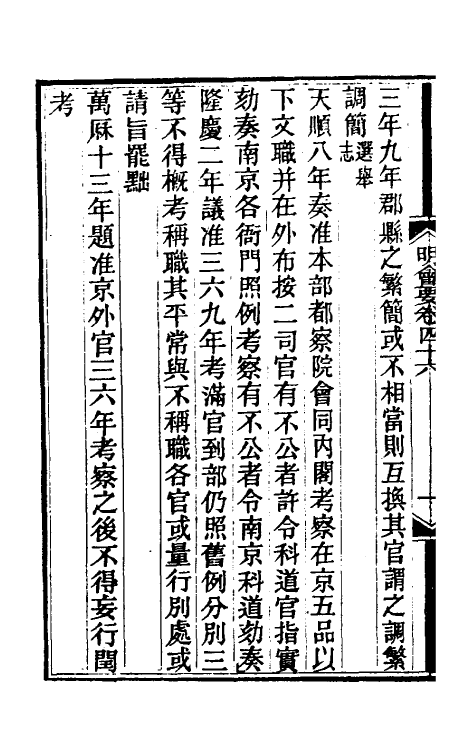 明會要卷四十六
三年九年郡縣之繁簡或不相當則互換其官謂之調繁
調簡選舉志
天順八年奏准本部都察院會同內閣考察在京五品以
下文職并在外布按二司官有不公者許令科道官指實
劾奏南京各衙門照例考察有不公者令南京科道劾奏
隆慶二年議准三六九年考滿官到部仍照舊例分別三
等不得槪考稱職其平常與不稱職各官或量行別處或
請旨罷黜
萬厤十三年題准京外官三六年考察之後不得妄行閏
考